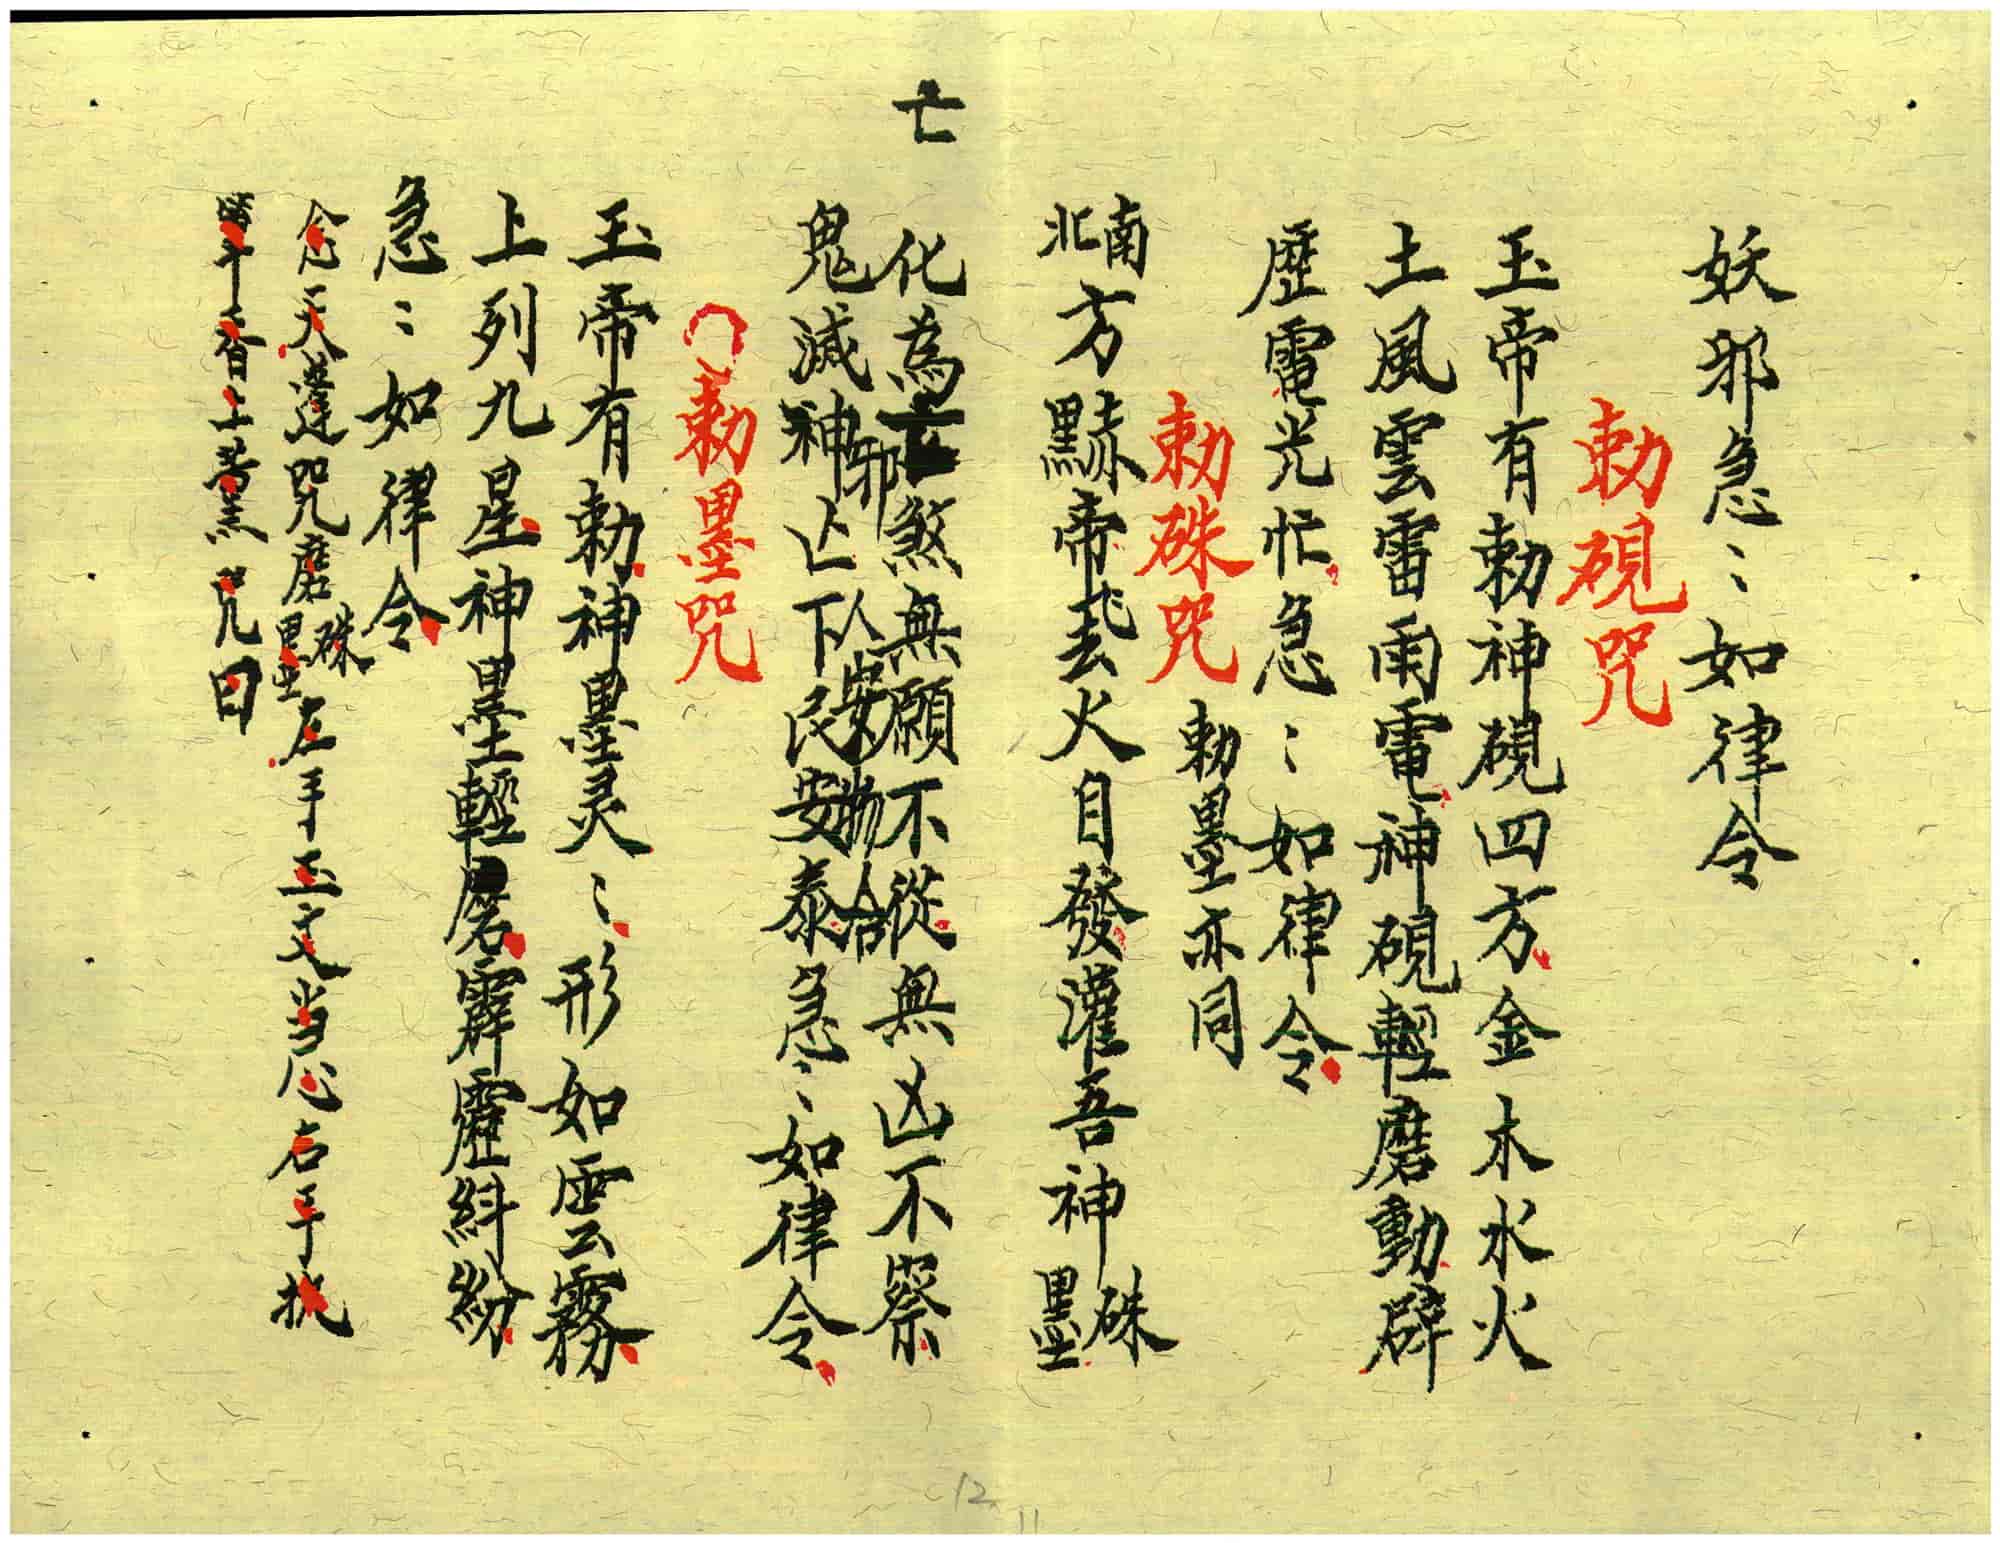 妖邪急〻如律令
勅硯咒
玉帝有勅神硯四方金木水火
土風雲雷雨電神硯輕磨動礔
歷電光忙急〻如律令
勅硃咒 勅墨亦同
南北方黑赤帝飛去火自發灌吾神硃墨
亡
化為煞無願不從無凶不察
邪 人安物合
鬼滅神亡下民安泰急〻如律令
勅墨咒
玉帝有勅神墨灵〻形如雲霧
上列九星神墨輕磨霹靂糾紛
急〻如律令
念天蓬咒磨硃墨左手玉文当心右手执
香上薰咒曰
12
11